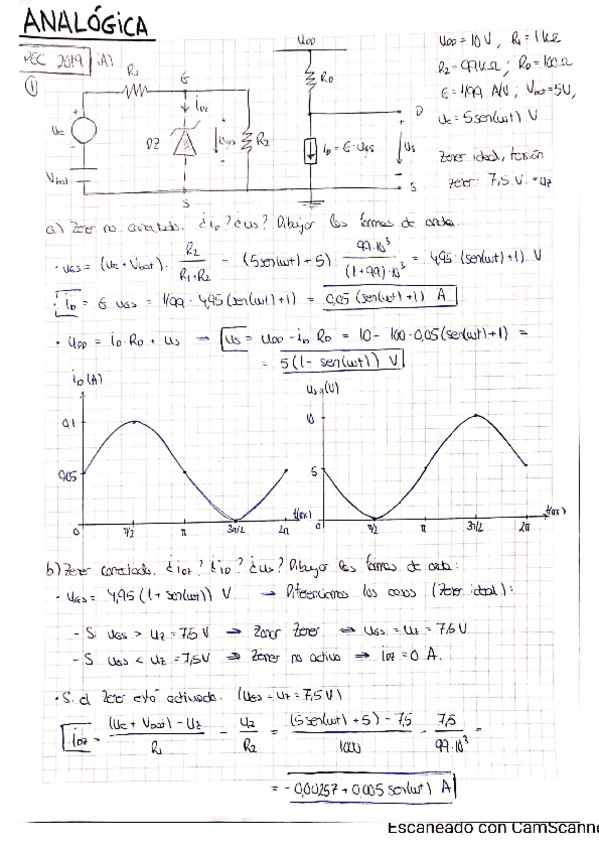 ANALÓGICA
PEC 2019 (A)
①
R₁
G
i_DZ
DZ
u_GS
R₂
u_e
V_bat
S
U_DD
R_D
D
i_D = G·u_GS
u_s
S
U_DD = 10 V, R₁ = 1 kΩ
R₂ = 99 kΩ; R_D = 100 Ω
G = 1/99 A/V; V_bat = 5V;
u_e = 5 sen(ωt) V
Zener ideal, tensión
zener: 7,5 V. = u_z
a) Zener no conectado. ¿i_D? ¿u_s? Dibujar las formas de onda.
· u_GS = (u_e + V_bat) · R₂/(R₁+R₂) = (5 sen(ωt) + 5) · 99·10³/((1+99)·10³) = 4,95 (sen(ωt)+1) V
· i_D = G · u_GS = 1/99 · 4,95 (sen(ωt)+1) = 0,05 (sen(ωt)+1) A
· U_DD = i_D · R_D + u_s → u_s = U_DD - i_D R_D = 10 - 100·0,05 (sen(ωt)+1) =
= 5 (1 - sen(ωt)) V
i_D (A)
0,1
0,05
0
π/2
π
3π/2
2π
u_s (V)
10
5
0
π/2
π
3π/2
2π
b) Zener conectado. ¿i_DZ? ¿i_D? ¿u_s? Dibujar las formas de onda:
· u_GS = 4,95 (1 + sen(ωt)) V → Diferenciamos los casos (Zener ideal):
- Si u_GS > u_z = 7,5 V → Zener → u_GS = u_z = 7,5 V
- Si u_GS < u_z = 7,5V → Zener no activo → i_DZ = 0 A.
· Si el Zener está activado. (u_GS = u_z = 7,5 V)
i_DZ = ((u_e + V_bat) - u_z)/R₁ - u_z/R₂ = ((5 sen(ωt) + 5) - 7,5)/1000 - 7,5/(99·10³) =
= -0,00257 + 0,005 sen(ωt) A
Escaneado con CamScanne